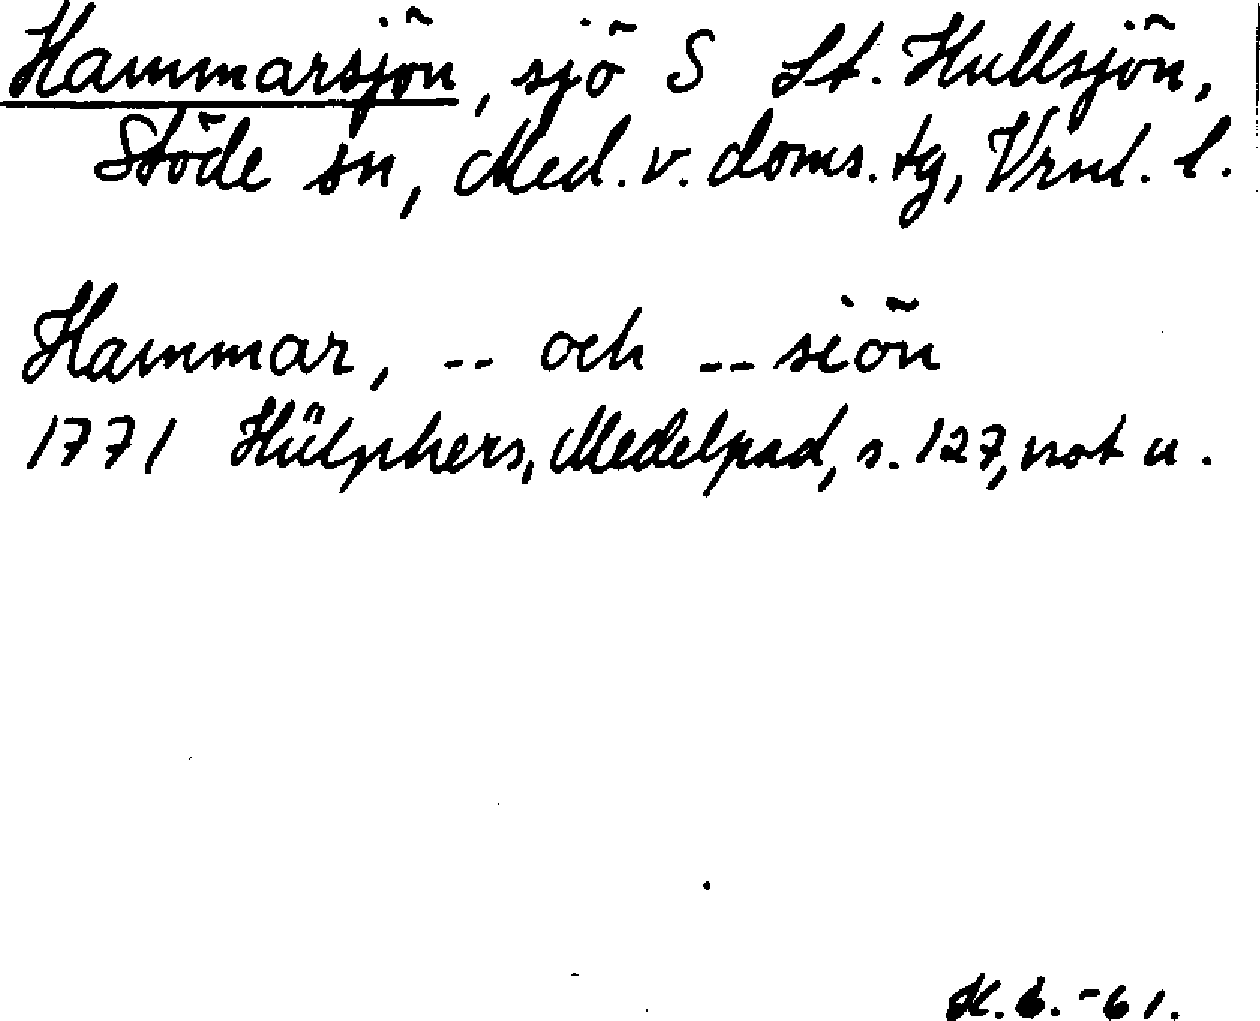 Hammarsjön, sjö S St. Hullsjön,
Stöde sn, Med. v. doms. tg, Vrnl. l.
Hammar, -- och -- siön
1771 Hülphers, Medelpad, s. 127, not u.
K. 6. -61.